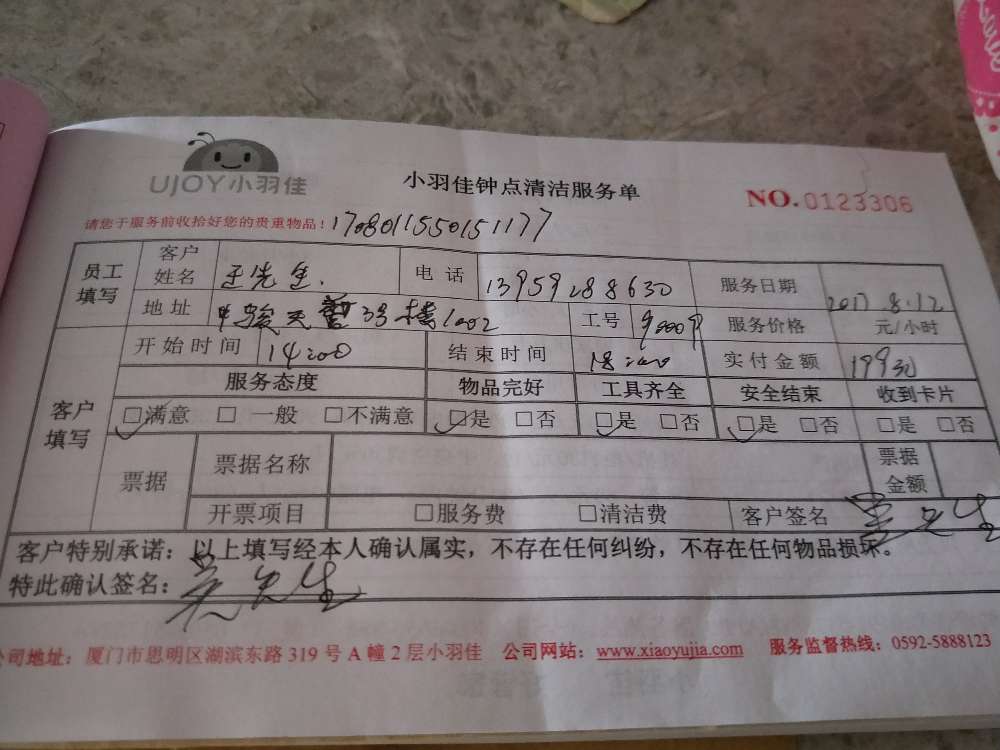 UJOY小羽佳
小羽佳钟点清洁服务单
NO.0123306
请您于服务前收拾好您的贵重物品！1708011550151177
员工填写 客户姓名 王先生. 电话 13959288630 服务日期 2017.8.12
地址 中骏天誉33号楼1002 工号 服务价格 元/小时
开始时间 14:00 结束时间 18:00 实付金额
客户填写 服务态度 物品完好 工具齐全 安全结束 收到卡片
□满意 □一般 □不满意 □是 □否 □是 □否 □是 □否 □是 □否
票据 票据名称 票据金额
开票项目 □服务费 □清洁费 客户签名
客户特别承诺：以上填写经本人确认属实，不存在任何纠纷，不存在任何物品损坏。
特此确认签名：
公司地址：厦门市思明区湖滨东路 319 号 A 幢 2 层小羽佳 公司网站：www.xiaoyujia.com 服务监督热线：0592-5888123